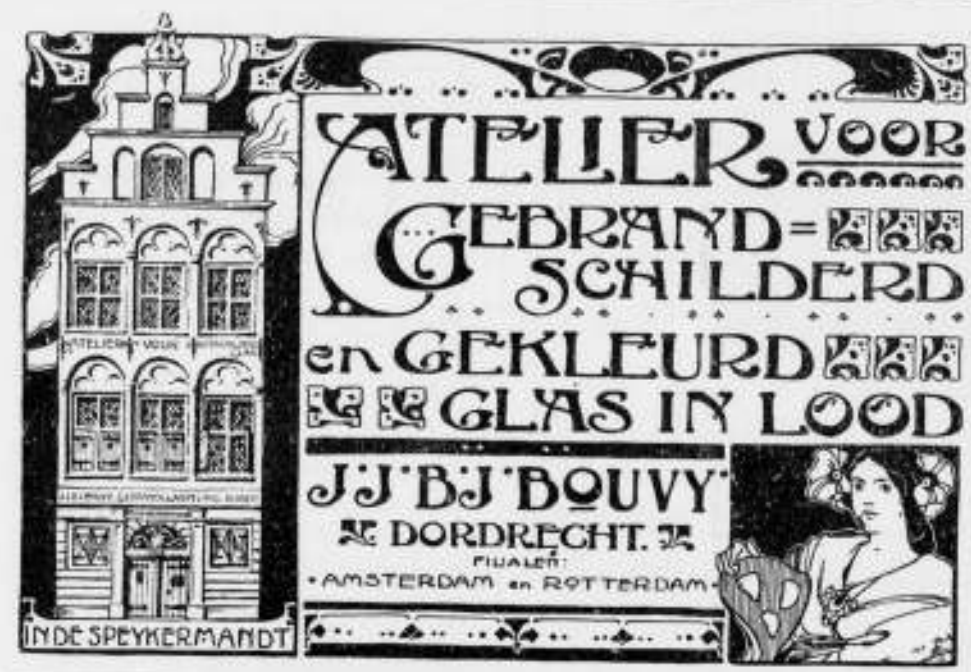 ATELIER VOOR
GEBRAND=
SCHILDERD
en GEKLEURD
GLAS IN LOOD
J.J.B.J. BOUVY
DORDRECHT.
FILIALEN:
AMSTERDAM en ROTTERDAM
ATELIER VOOR
IN DE SPEYKERMANDT